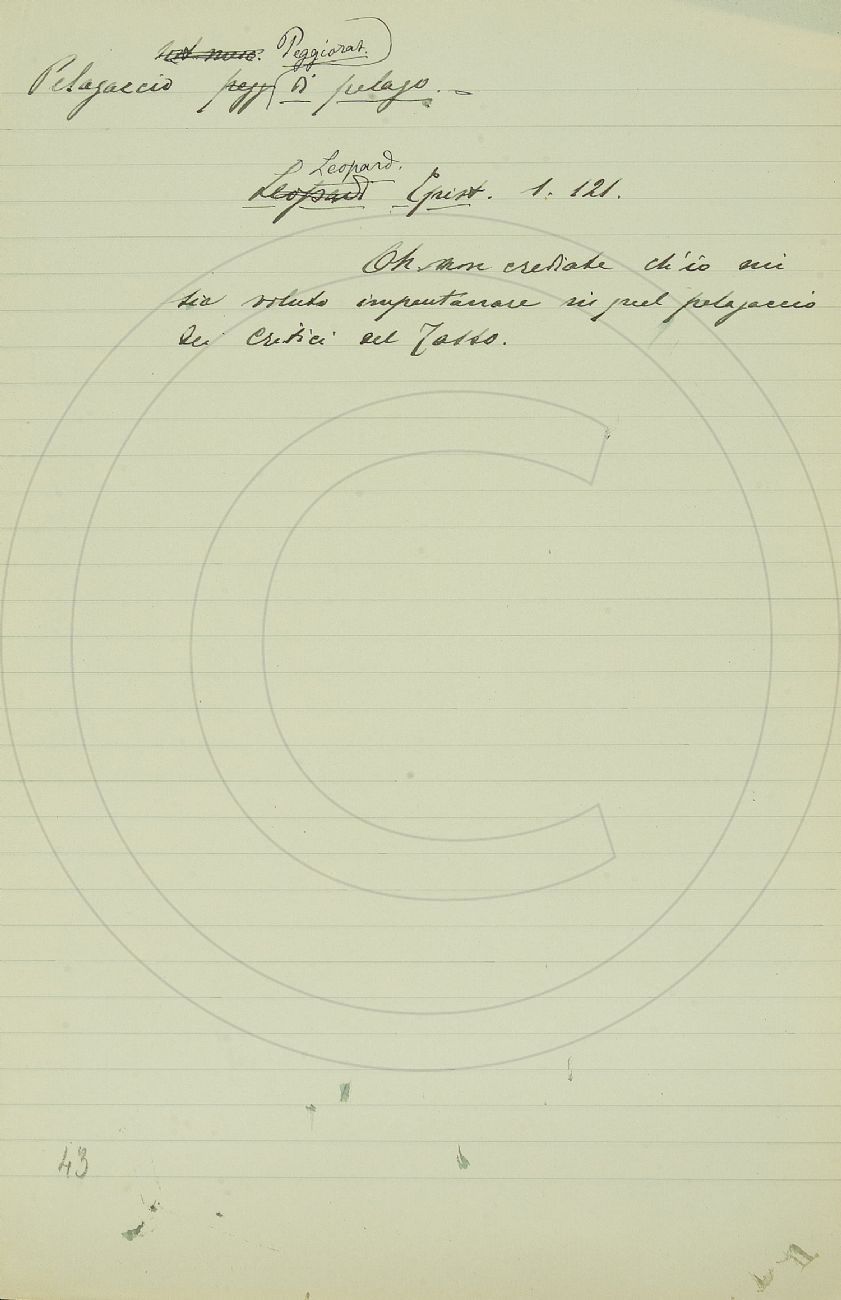 Peggiorat.
Pelagaccio pegg di pelago. -
Leopard.
Leopard Epist. 1. 121.
Oh non crediate ch'io mi
sia voluto impantanare in quel pelagaccio
dei Critici del Tasso.
43